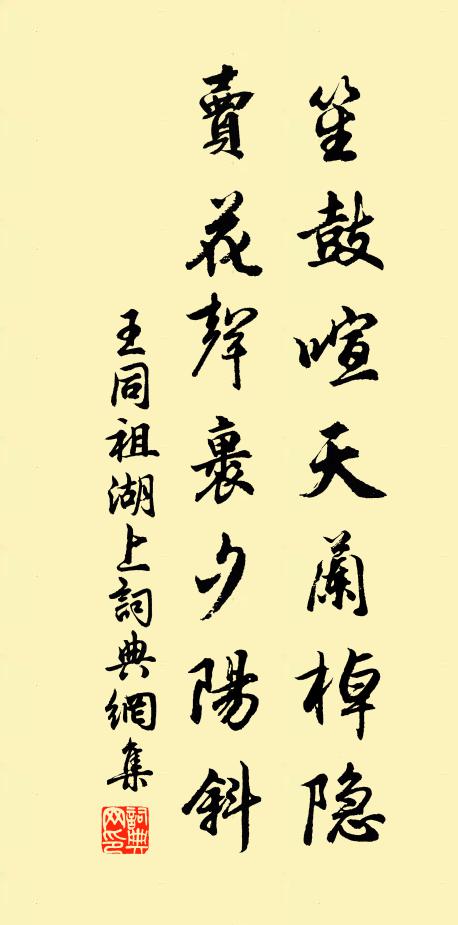 笙鼓喧天蘭棹隐
賣花聲裏夕陽斜
王同祖湖上詞典網集
詞典網印